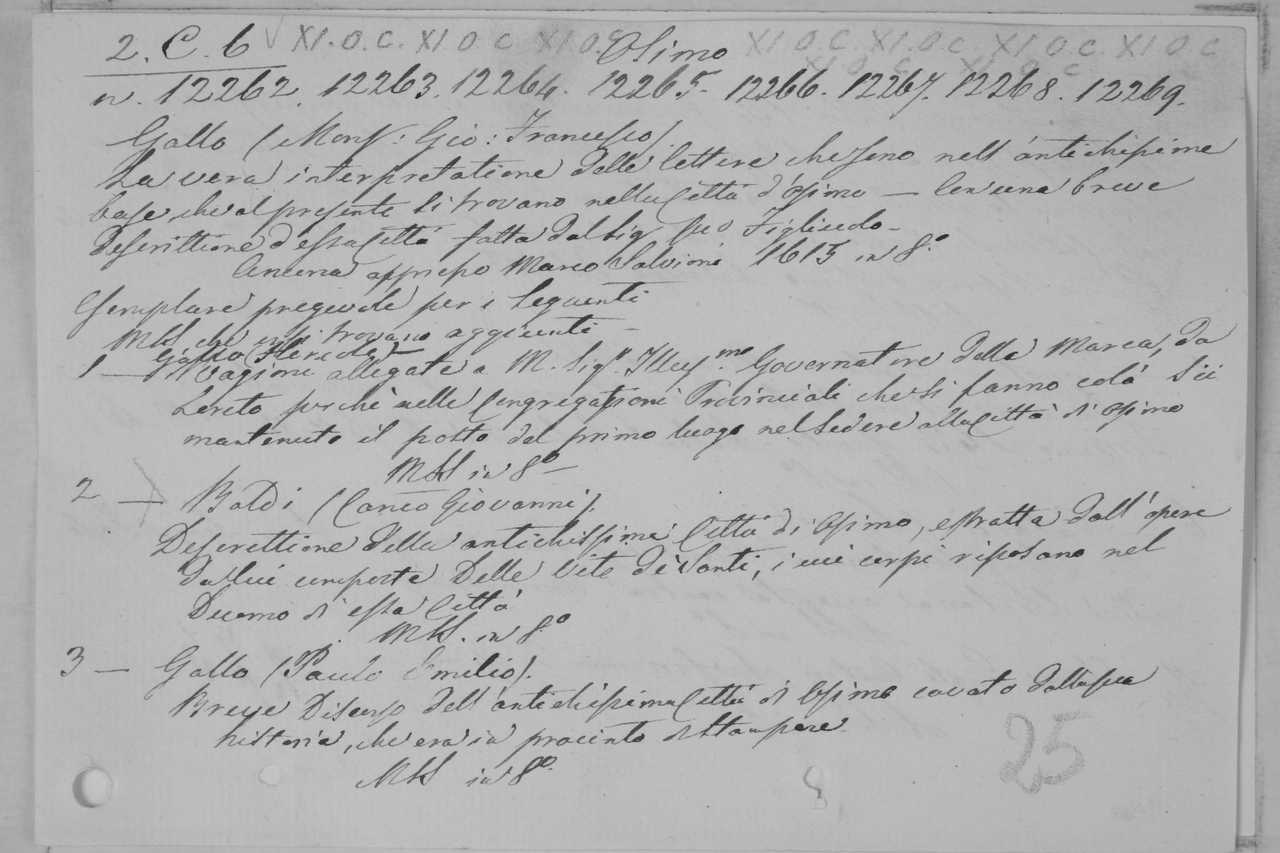 2. C. 6 √ XI.O.C. XI O C XI O C Osimo XI O C XI. O C. XI. O C. XI O C
XI O C XI O C
n. 12262. 12263. 12264. 12265. 12266. 12267. 12268. 12269.
Gallo (Mons: Gio: Francesco)
La vera interpretatione delle lettere che sono nell'antichissime
base che al presente si trovano nella Città d'Osimo — Con una breve
Descrittione d'essa Città fatta dal Sig.
Ancona appresso Marco Salvioni 1615 in 8.°
Esemplare pregevole per i seguenti
MSS che vi si trovano aggiunti —
Gallo
1 — Ragione allegate a M. Sig.r Ill.mo Governatore della Marca, da
Loreto perchè nelle Congregationi Provinciali che si fanno colà sii
mantenuto il posto del primo luogo nel sedere alla Città di Osimo
MSS in 8.° —
2 — Baldi (Canco Giovanni).
Descrettione della antichissima Città di Osimo, estratta dall'opere
da lui composte Delle Vite de Santi, i cui corpi riposano nel
Duomo di essa Città
MSS. in 8.°
3 — Gallo (Paulo Emilio).
Breve Discorso dell'antichissima Città di Osimo cavato dalla sua
historia, che era in procinto di stampare
MSS in 8.°
25
8